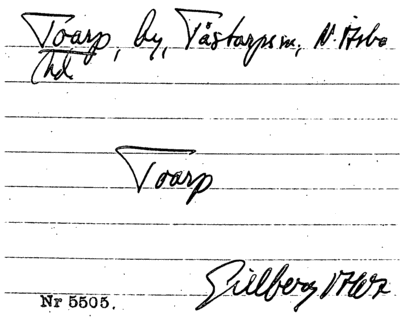 Toarp, by, Tåstarps sn, N. Åsbo
hd
Toarp
Gillberg
Nr 5505.